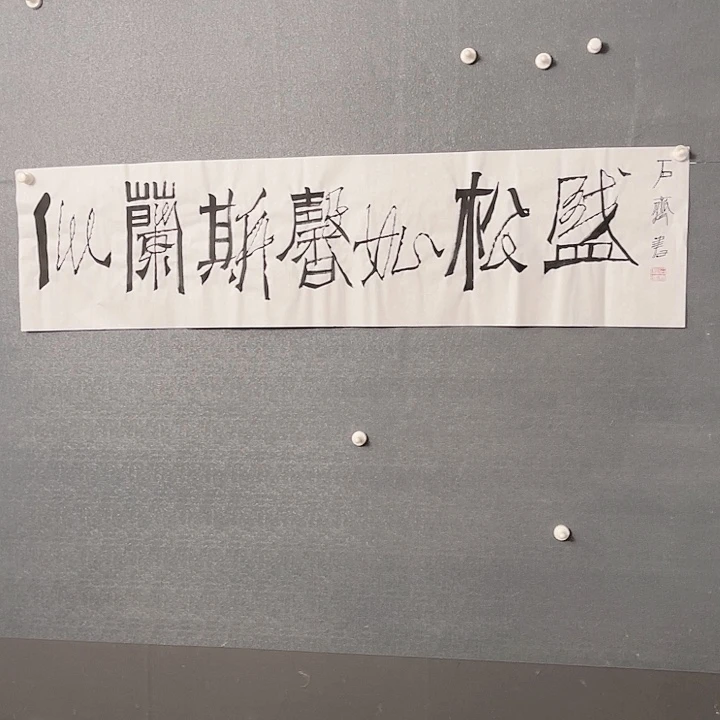 似蘭斯馨如松盛
戶齋書